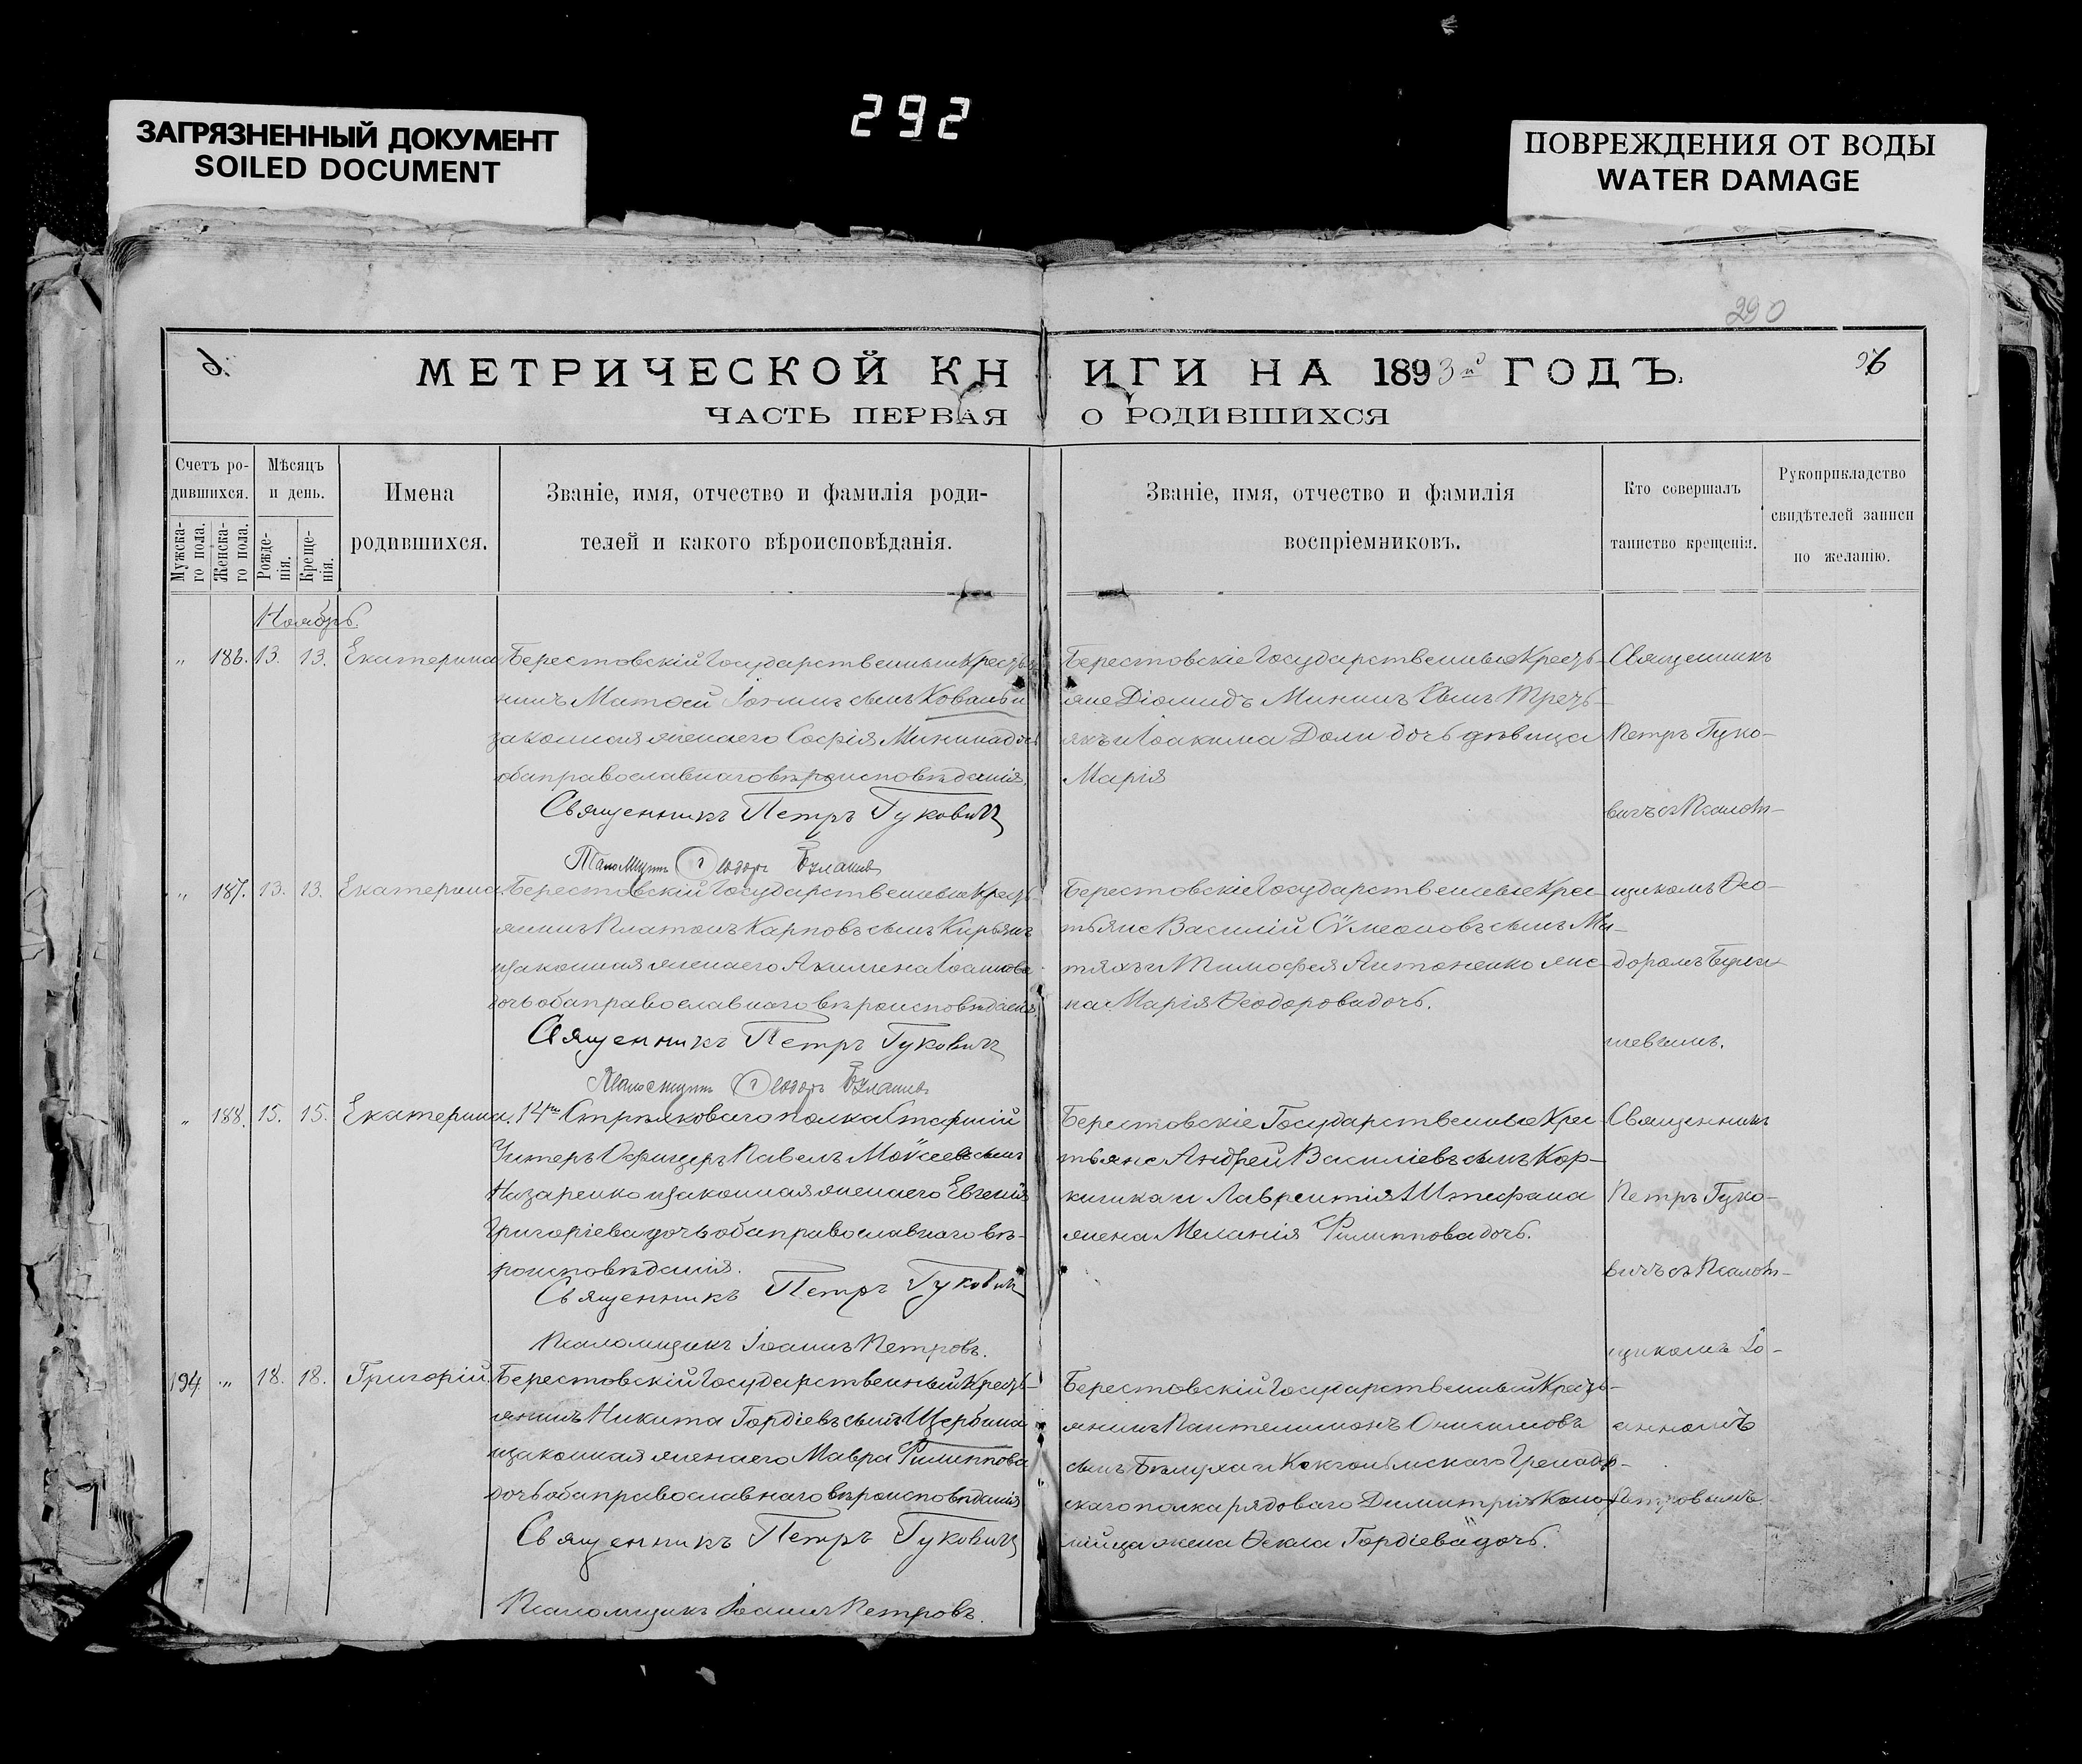 292
ЗАГРЯЗНЕННЫЙ ДОКУМЕНТ
SOILED DOCUMENT
ПОВРЕЖДЕНИЯ ОТ ВОДЫ
WATER DAMAGE
290
МЕТРИЧЕСКОЙ КНИГИ НА 1893й ГОДЪ.
96
ЧАСТЬ ПЕРВАЯ О РОДИВШИХСЯ
Счетъ ро-
дившихся.
Мужска-
го пола.
Женска-
го пола.
Мѣсяцъ
и день.
Рожде-
нія.
Креще-
нія.
Имена
родившихся.
Званіе, имя, отчество и фамилія роди-
телей и какого вѣроисповѣданія.
Званіе, имя, отчество и фамилія
воспріемниковъ.
Кто совершалъ
таинство крещенія.
Рукоприкладство
свидѣтелей записи
по желанію.
Ноябрь.
" 186. 13. 13. Екатерина
Берестовскій Государственный Кресть-
нинъ Матѳей Іоннинъ сынъ Коваль и
законная жена его Софія Минина дочь
оба православнаго вѣроисповѣданія.
Священникъ Петръ Гуковичъ
Псаломщикъ Ѳеодоръ
Берестовскіе Государственные Кресть-
яне Діомидъ Мининъ сынъ Треть-
якъ и Іоакима Доли дочь дѣвица
Марія
" 187. 13. 13. Екатерина.
Берестовскій Государственный Кресть-
янинъ Платонъ Карповъ сынъ Кирьянъ
и законная жена его Акилина Іоаннова
дочь оба православнаго вѣроисповѣданія.
Священникъ Петръ Гуковичъ
Псаломщикъ Ѳеодоръ
Берестовскіе Государственные Крес-
тьяне Василій Сѵмеоновъ сынъ Ми-
тяхъ и Тимофея Антоненко же-
на Марія Ѳеодорова дочь.
Священникъ
Петръ Гуко-
вичъ съ Псалом-
щикомъ Ѳео-
доромъ
" 188. 15. 15. Екатерина.
14го Стрѣлковаго полка Старшій
Унтеръ Офицеръ Павелъ Моѵсеевъ сынъ
Назаренко и законная жена его Евгенія
Григоріева дочь оба православнаго вѣ-
роисповѣданія.
Священникъ Петръ Гуковичъ
Псаломщикъ Іоаннъ Петровъ.
Берестовскіе Государственные Крес-
тьяне Андрей Василіевъ сынъ Кор-
кишка и Лаврентія Штефана
жена Меланія Филиппова дочь.
194. " 18. 18. Григорій.
Берестовскій Государственный Кресть-
янинъ Никита Гордіевъ сынъ Щербина
и законная жена его Мавра Филиппова
дочь оба православнаго вѣроисповѣданія
Священникъ Петръ Гуковичъ
Псаломщикъ Іоаннъ Петровъ.
Берестовскій Государственный Кресть-
янинъ Пантелимонъ Онисимовъ
сынъ Бѣлуха и Кексгольмскаго Гренадер-
скаго полка рядоваго Димитрія
жена Ѳекла Гордіева дочь.
Священникъ
Петръ Гуко-
вичъ съ Псалом-
щикомъ Іо-
анномъ
Петровымъ.